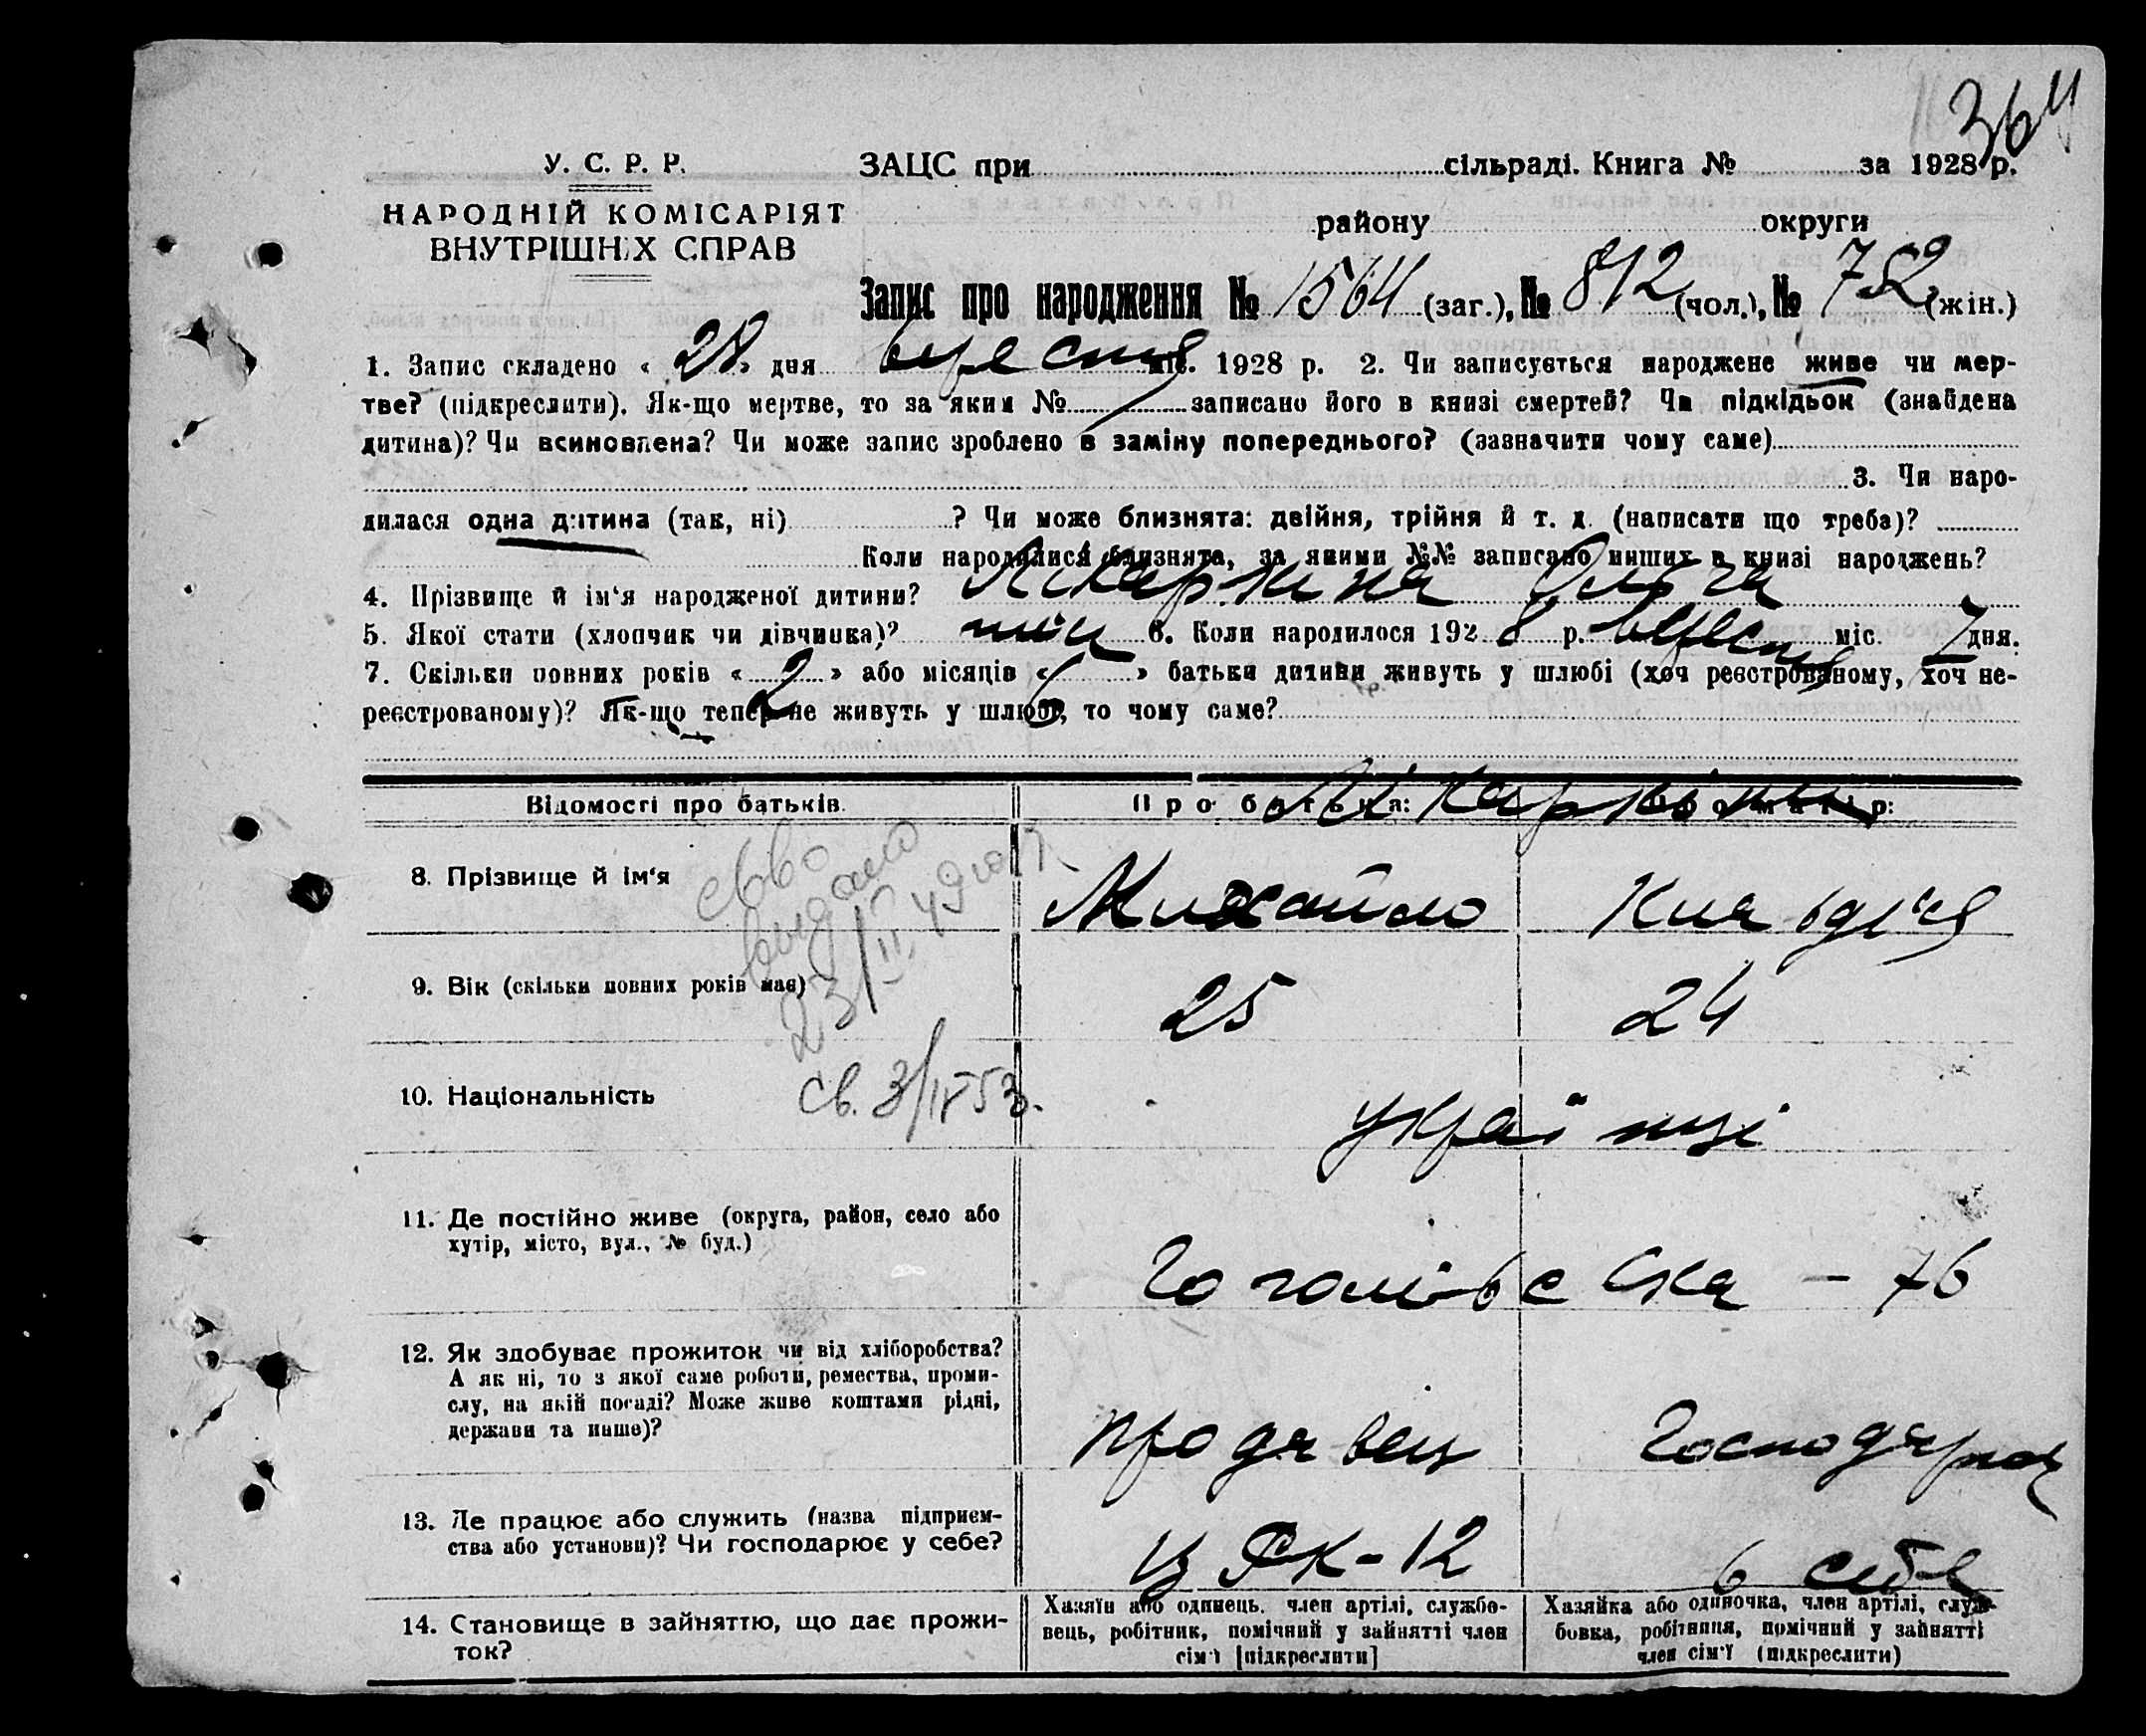 364
У. С. Р. Р.
ЗАЦС при сільраді. Книга № за 1928 р.
НАРОДНІЙ КОМІСАРІЯТ
ВНУТРІШНІХ СПРАВ
району округи
Запис про народження № 1564 (заг.), № 812 (чол.), № 752 (жін.)
1. Запис складено « 28 » дня міс. 1928 р. 2. Чи записується народжене живе чи мер-
тве? (підкреслити). Як-що мертве, то за яким № записано його в книзі смертей? Чи підкідьок (знайдена
дитина)? Чи всиновлена? Чи може запис зроблено в заміну попереднього? (зазначити чому саме)
3. Чи наро-
дилася одна дитина (так, ні) ? Чи може близнята: двійня, трійня й т. д. (написати що треба)?
Коли народилися близнята, за якими №№ записано инших в книзі народжень?
4. Прізвище й ім'я народженої дитини? Ольга
5. Якої статі (хлопчик чи дівчинка)? жін 6. Коли народилося 192 8 р. міс. 7 дня.
7. Скільки повних років « 2 » або місяців « » батьки дитини живуть у шлюбі (хоч реєстрованому, хоч не-
реєстрованому)? Як-що тепер не живуть у шлюбі, то чому саме?
Відомості про батьків. Про батька: Про матір:
8. Прізвище й ім'я Михайло Клавдія
видано
9. Вік (скільки повних років має) 25 24
10. Національність українці
св. 3/IV 53.
11. Де постійно живе (округа, район, село або
хутір, місто, вул., № буд.)
Гоголівська – 76
12. Як здобуває прожиток чи від хліборобства?
А як ні, то з якої саме роботи, ремества, проми-
слу, на якій посаді? Може живе коштами рідні,
держави та инше)?
продавець Господарює
13. Де працює або служить (назва підприєм-
ства або установи)? Чи господарює у себе?
ЦРК-12 в себе
14. Становище в зайняттю, що дає прожи-
ток?
Хазяїн або одинець, член артілі, службо-
вець, робітник, помічний у зайнятті член
сім'ї [підкреслити]
Хазяйка або одиночка, член артілі, служ-
бовка, робітниця, помічний у зайнятті
член сім'ї (підкреслити)